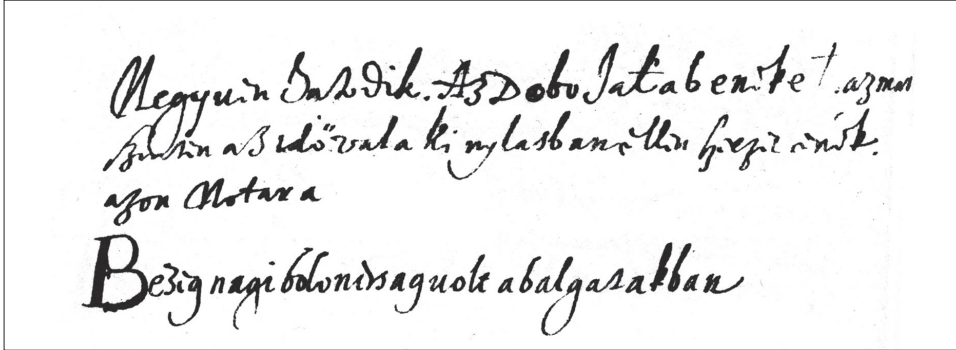 Negyuin hatodik. Az Dobo Jakab enike † . az mar
szintin az üdö vala ki nylasban ellin szerzet enök.
azon Notara
Bezig nagi bolondsag uolt a balgatakban